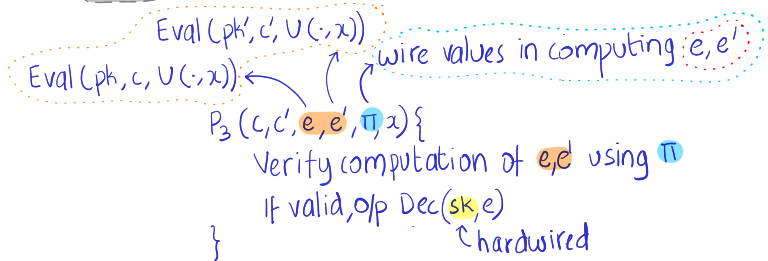 Eval(pk', c', U(·,x))
Eval(pk, c, U(·,x))
wire values in computing e, e'
P₃(c, c', e, e', π, x){
Verify computation of e,e' using π
If valid, o/p Dec(sk, e)
hardwired
}